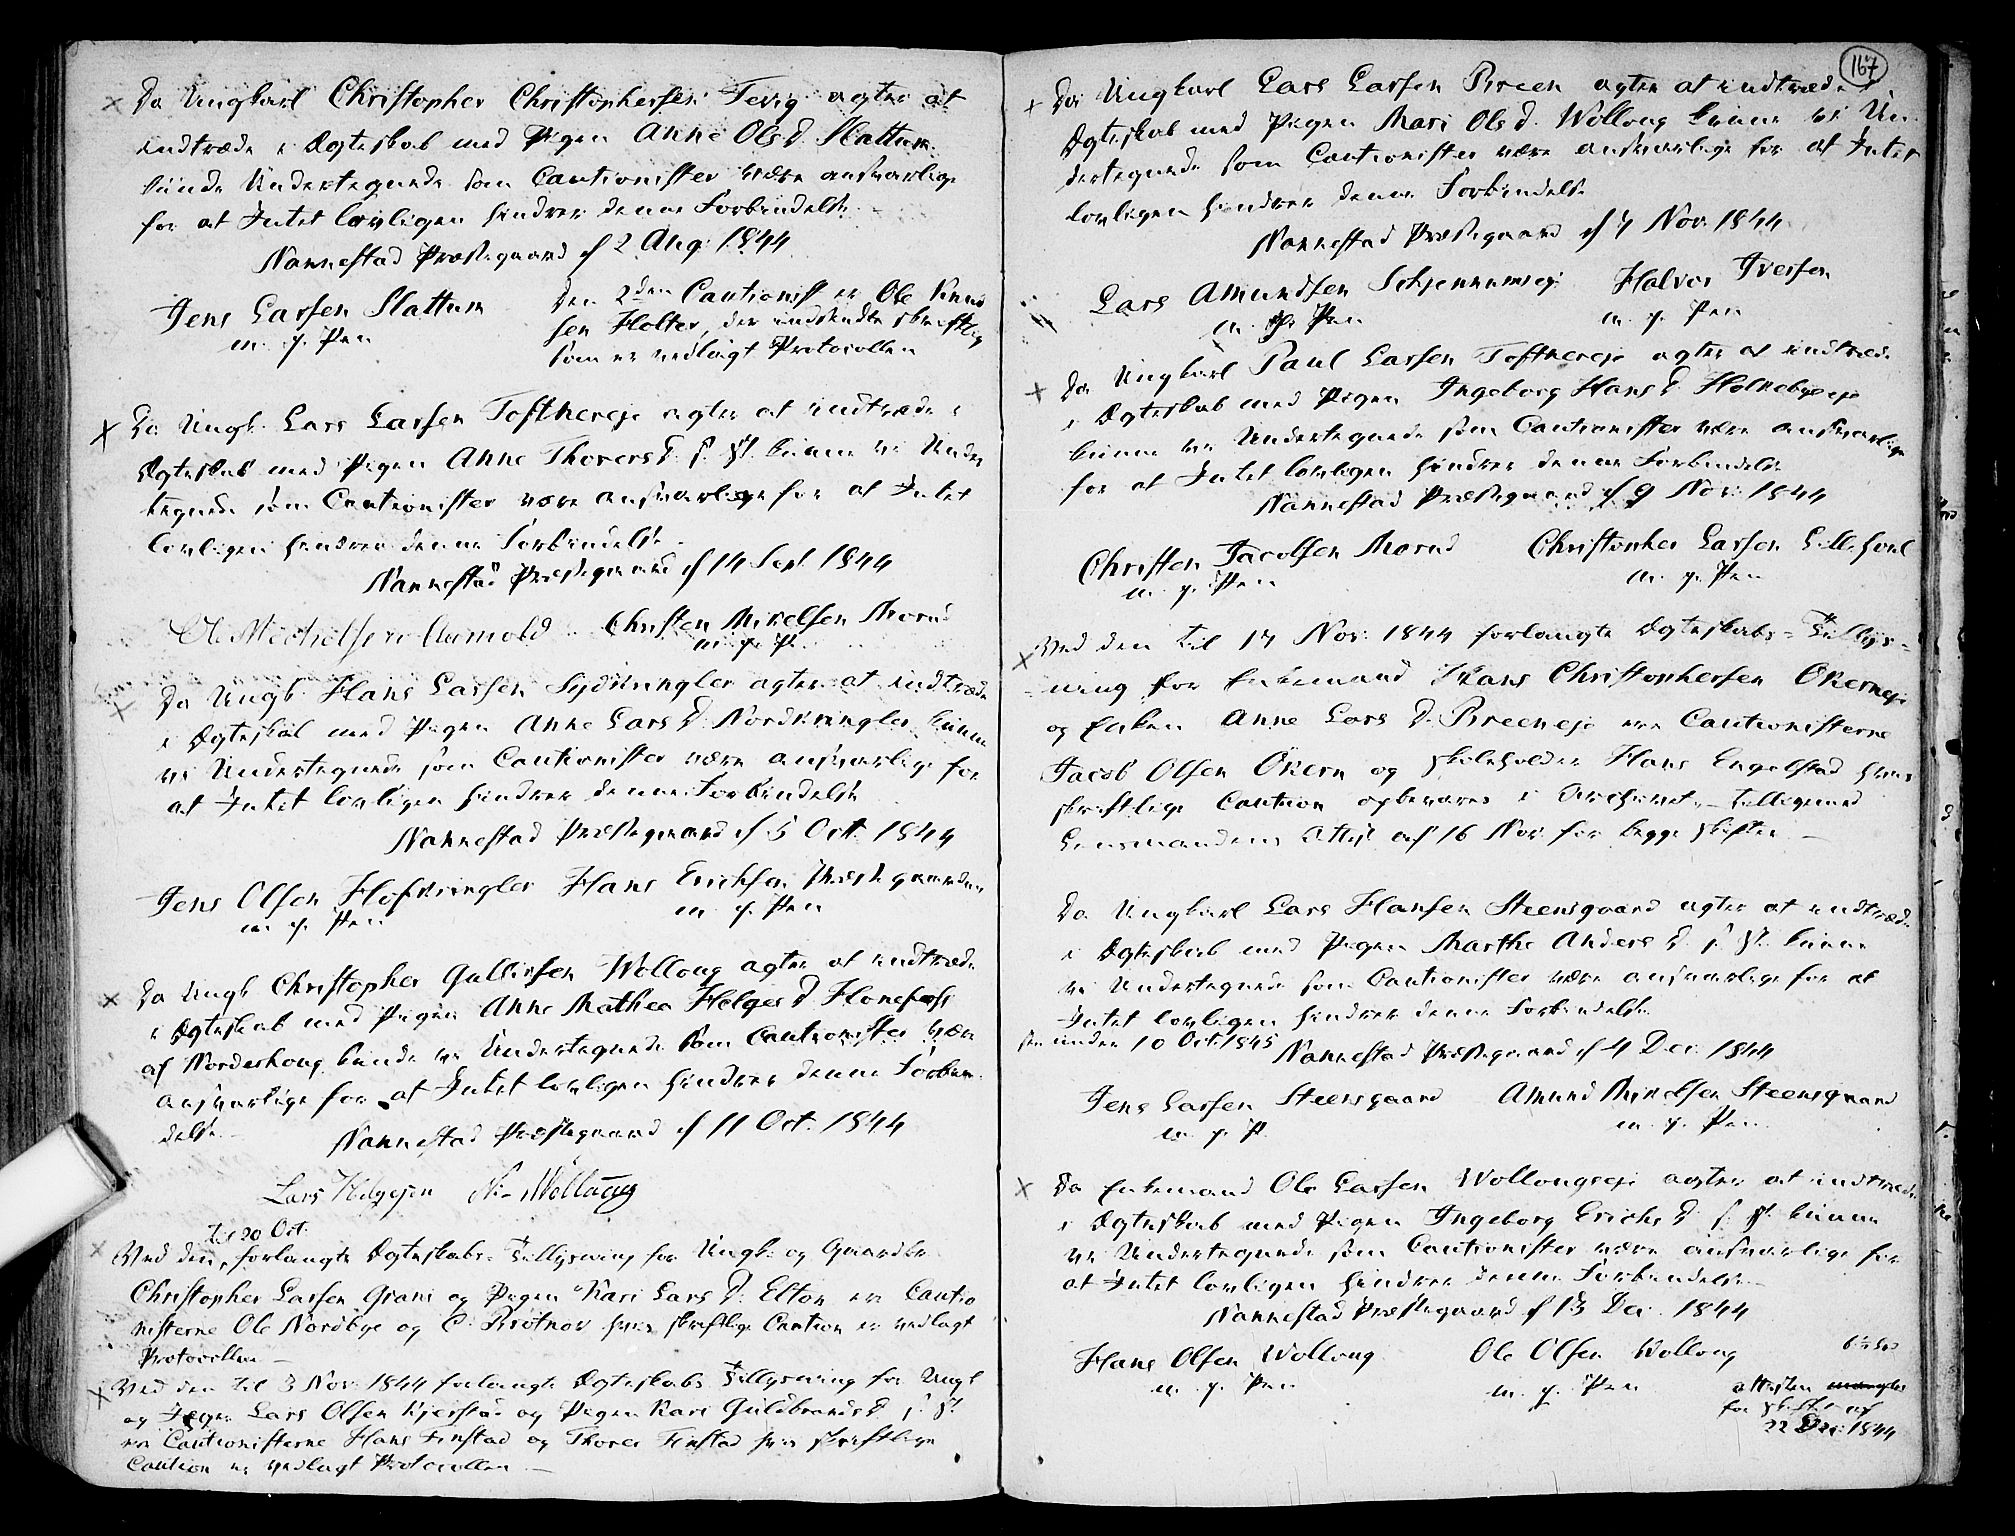 Da Ungkarl Christopher Christophersen Tevig agter at
indtræde i Ægteskab med Pigen Anne Ols D. Slattum
kunde Undertegnede som Cautionister være ansvarlige
for at Intet lovligen hindrer denne Forbindelse.
Nannestad Præstegaard d 2 Aug. 1844
Jens Larsen Slattum
m. f. Pen
Den 2den Cautionist er Ole Knud
sen Holter, der indsendte skriftlig
som er vedlagt Protocollen
Da Ungk. Lars Larsen Toftnereje agter at indtræde i
Ægteskab med Pigen Anne Thorers D. s. St. kunne vi Under
tegnede som Cautionister være ansvarlige for at Intet
lovligen hindrer denne Forbindelse.
Nannestad Præstegaard d 14 Sept 1844
Ole Michelsen Aamold Christen Mikelsen Morud
m. f. P.
Da Ungk. Hans Larsen Sydkringler agter at indtræde
i Ægteskab med Pigen Anne Lars D. Nordkringler kunne
vi Undertegnede som Cautionister være ansvarlige for
at Intet lovligen hindrer denne Forbindelse
Nannestad Præstegaard d 5 Oct. 1844
Jens Olsen Høfkringler Hans Erichsen Præstegaarden
m. f. Pen m. f. Pen
Da Ungk. Christopher Gulliksen Wollong agter at indtræde
i Ægteskab med Pigen Anne Mathea Helges D.
af Norderhoug kunde vi Undertegnede som Cautionister være
ansvarlige for at Intet lovligen hindrer denne Forbin
delse.
Nannestad Præstegaard d 11 Oct. 1844
Lars Helgesen N. Wollaug
til 20 Oct.
Ved den forlangte Ægteskabs-Tillysning for Ungk. og Gaardbr
Christopher Larsen Grani og Pigen Kari Lars D. Elton ere Cautio
nisterne Ole Nordbye og C. Brotnov hvis skriftlige Caution er vedlagt
Protocollen
Ved den til 3 Nov. 1844 forlangte Ægteskabs Tillysning for Ungk
og Jæger Lars Olsen Kjerstad og Pigen Kari Guldbrands D. s. St.
ere Cautionisterne Hans Finstad og Thorer Finstad hvis skriftlige
Caution er vedlagt Protocollen
167
Da Ungkarl Lars Larsen Breen agter at indtræde i
Ægteskab med Pigen Mari Ols D. Wollong kunne vi Un
dertegnede som Cautionister være ansvarlige for at Intet
lovligen hindrer denne Forbindelse
Nannestad Præstegaard d 4 Nov. 1844
Lars Amundsen Halvor Iversen
m. f. Pen m. f. Pen
Da Ungkarl Paul Larsen Toftnereje agter at indtræde
i Ægteskab med Pigen Ingeborg Hans D. Holkebyeeje
kunne vi Undertegnede som Cautionister være ansvarlige
for at Intet lovligen hindrer denne Forbindelse
Nannestad Præstegaard d 9 Nov. 1844
Christen Jacobsen Morud Christopher Larsen Lillehoel
m. f. Pen m. f. Pen
Ved den til 17 Nov. 1844 forlangte Ægteskabs-Tillys-
ning for Enkemand Hans Christophersen Økerneje
og Enken Anne Lars D. Breeneje ere Cautionisterne
Jacob Olsen Økern og Skoleholder Hans Engelstad hvis
skriftlige Caution opbevares i Archivet, tilligemed
Lensmandens Attest af 16 Nov. for begge Skifter
Da Ungkarl Lars Hansen Steensgaard agter at indtræde
i Ægteskab med Pigen Marthe Anders D. s. St. kunne
vi Undertegnede som Cautionister være ansvarlige for at
Intet lovligen hindrer denne Forbindelse.
see under 10 Oct. 1845 Nannestad Præstegaard d 4 Dec. 1844
Jens Larsen Steensgaard Amund Mikelsen Steensgaard
m. f. P. m. f. Pen
Da Enkemand Ole Larsen Wollongseje agter at indtræde
i Ægteskab med Pigen Ingeborg Erichs D. s. St. kunne
vi Undertegnede som Cautionister være ansvarlige for
at Intet lovligen hindrer denne Forbindelse
Nannestad Præstegaard d 13 Dec. 1844
Hans Olsen Wollong Ole Olsen Wollong
m. f. Pen m. f. Pen
Attesten mangler
for Skifte af
22 Dec. 1844